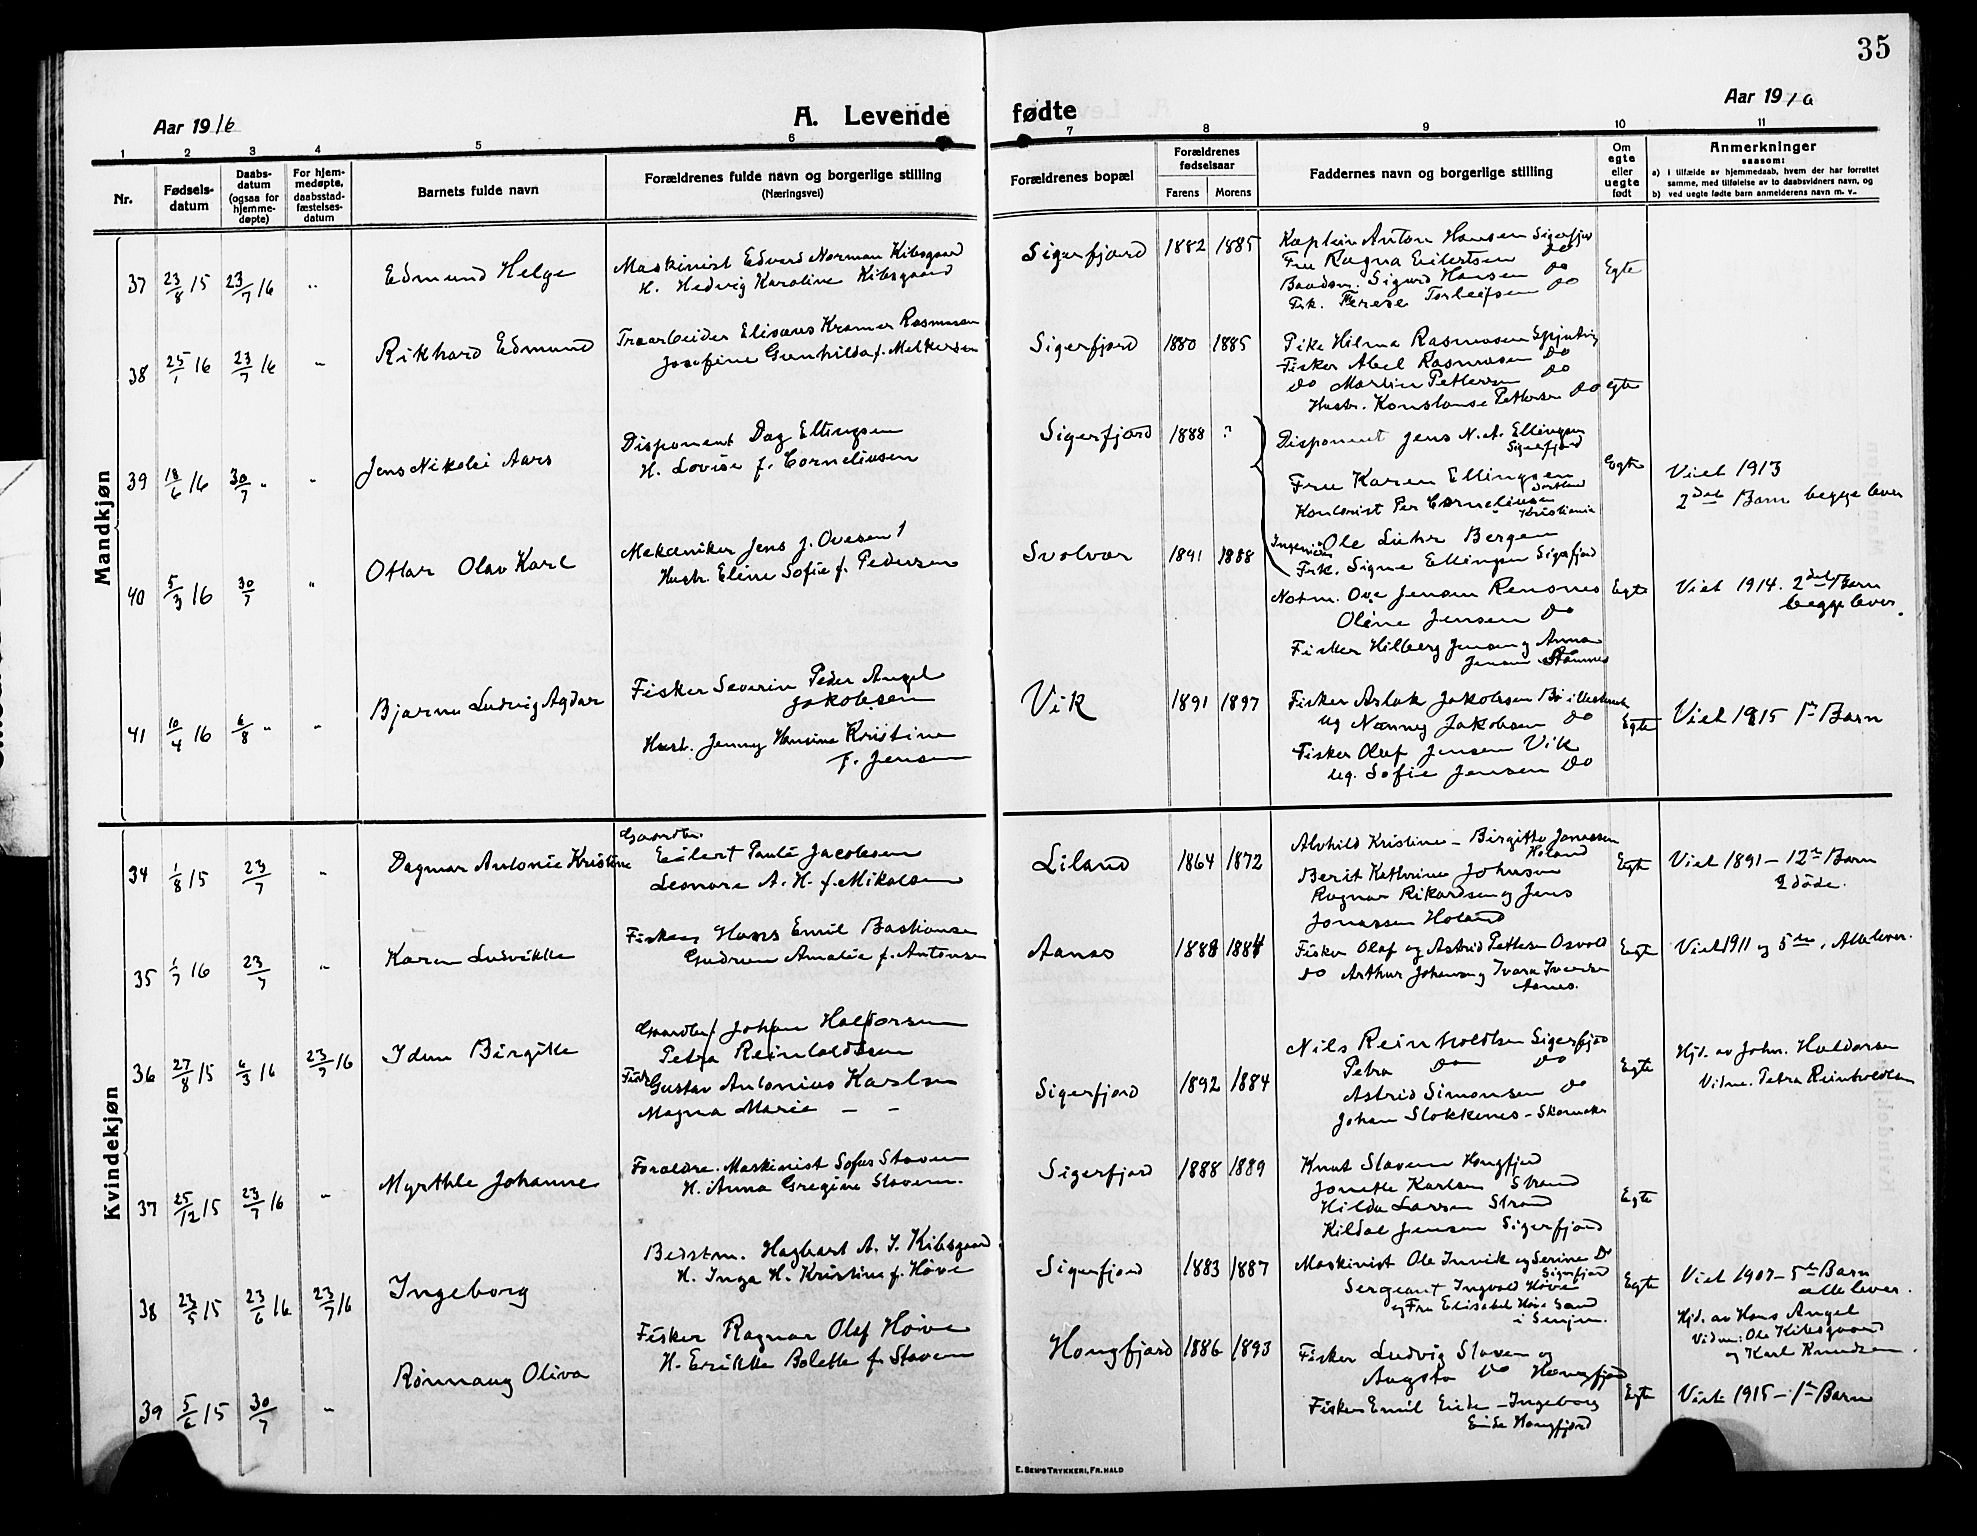 35
Aar 1916
A. Levende
fødte
Aar 19
1 2 3 4 5 6 7 8 9 10 11
Nr.
Fødsels-
datum
Daabs-
datum
(ogsaa for
hjemme-
døpte)
For hjem-
medøpte,
daabsstad-
fæstelses-
datum
Barnets fulde navn
Forældrenes fulde navn og borgerlige stilling
(Næringsvei)
Forældrenes bopæl
Forældrenes
fødselsaar
Farens Morens
Faddernes navn og borgerlige stilling
Om
egte
eller
uegte
født
Anmerkninger
saasom:
a) i tilfælde av hjemmedaab, hvem der har forrettet
samme, med tilføielse av to daabsvidners navn, og
b) ved uegte fødte barn anmelderens navn m. v..
Mandkjøn
37 23/8 15 23/7 16 " Edmund Helge
Maskinist Edvard Norman Kibsgaard
H. Hedvig Karoline Kibsgaard
Sigerfjord 1882 1885
Kaptein Anton Hansen Sigerfjor
Fru Ragna Eilertsen do
Baadsm. Sigurd Hansen do
Frk. Terese Torleifsen do
Egte
38 25/1 16 23/7 16 " Rikhard Edmund
Træarbeider Elisæus Kramer Rasmussen
Josefine Gunhilda f. Melkersen
Sigerfjord 1880 1885
Pike Hilma Rasmussen
Fisker Abel Rasmussen do
do Martin Pettersen do
Hustr. Konstanse Pettersen do
egte
39 18/6 16 30/7 " " Jens Nikolai Aars
Disponent Dag Ellingsen
H. Lovise f. Corneliusen
Sigerfjord 1888 ?
Disponent Jens N. A. Ellingsen
Sigerfjord
Fru Karen Ellingsen
Sortland
Kontorist Per Corneliusen
Kristiania
Ingeniør Ole Luhr Bergen
Frk. Signe Ellingsen Sigerfjord
Egte
Viet 1913
2det Barn begge lever
40 5/3 16 30/7 " Ottar Olav Karl
Mekaniker Jens J. Ovesen
Hustr. Eline Sofie f. Pedersen
Svolvær 1891 1888
Notm. Ove Jensen Rensnes
Oline Jensen do
Fisker Hilberg Jensen og Anna
Jensen
Egte
Viet 1914. 2det Barn
begge lever.
41 10/4 16 6/8 " " Bjarne Ludvig Agdar
Fisker Severin Peder Angel
Jakobsen
Hustr. Jenny Hansine Kristine
f. Jensen
Vik 1891 1897
Fisker Aslak Jakobsen Bø i Vesteraal
og Nanny Jakobsen do
Fisker Olaf Jensen Vik
og Sofie Jensen do
Egte
Viet 1915 1ste Barn
Kvindekjøn
34 1/8 15 23/7 " Dagmar Antonie Kristine
Gaardbr.
Eilert Pauli Jacobsen
Leonore A. H. f. Mikalsen
Liland 1864 1872
Alvhild Kristine - Birgitte Jonassen
Holand
Berit Kathrine Johnsen
Ragnar Rikardsen og Jens
Jonassen Holand
Egte
Viet 1891 - 12te Barn
2 døde.
35 1/7 16 23/7 " Karen Ludvikke
Fisker Hans Emil Bastiansen
Gudrun Amalie f. Antonsen
Aanes 1888 1884
Fisker Olaf og Astrid Pettersen Osvold
do Arthur Johansen og Ivara Iversen
Aanes.
Egte
Viet 1911 og 5te, Alle lever.
36 27/8 15 6/3 16 23/7 16 Idun Birgitte
Gaardbr/ Johan Haldorsen
Petra Reinholdtsen
Fisk. Gustav Antonius Karlsen
Magna Marie - -
Sigerfjord 1892 1884
Nils Reinholdtsen Sigerfjord
Petra do do
Astrid Simonsen do
Johan Slokkenes - Skomaker
Egte
Hjd. av John. Haldorsen
Vidne. Petra Reinholdtsen
37 25/12 15 23/7 16 " Myrthle Johanne
Foraldre. Maskinist Sofus Staven
H. Anna Gregine Staven.
Sigerfjord 1888 1889
Knut Slaven Hongfjord
Jonette Karlsen Strand
Hilda Larsen Strand
Kildal Jensen Sigerfjord
Egte
38 23/5 15 23/6 16 23/7 16 Ingeborg
Bedstm. Hagbart A. J. Kibsgaard
H. Inga H. Kristine f. Høve
Sigerfjord 1883 1887
Maskinist Ole Invik og Serine do
Sigerfjord
Sergeant Ingvald Høve
og Fru Elisabet Høve Sand
i Senjen.
Egte
Viet 1907 - 5te Barn
alle lever.
Hjd. av Hans Angel
Vidne: Ole Kibsgaard
og Karl Knudsen.
39 5/6 15 30/7 " Rønnaug Oliva
Fisker Ragnar Olaf Høve
H. Erikke Bolette f. Staven
Hongfjord 1886 1893
Fisker Ludvig Slaven og
Augsta do Hongfjord
Fisker Emil Eide - Ingeborg
Eide Hongfjord
Egte
Viet 1915 - 1te Barn
E. SEM'S TRYKKERI, FR. HALD